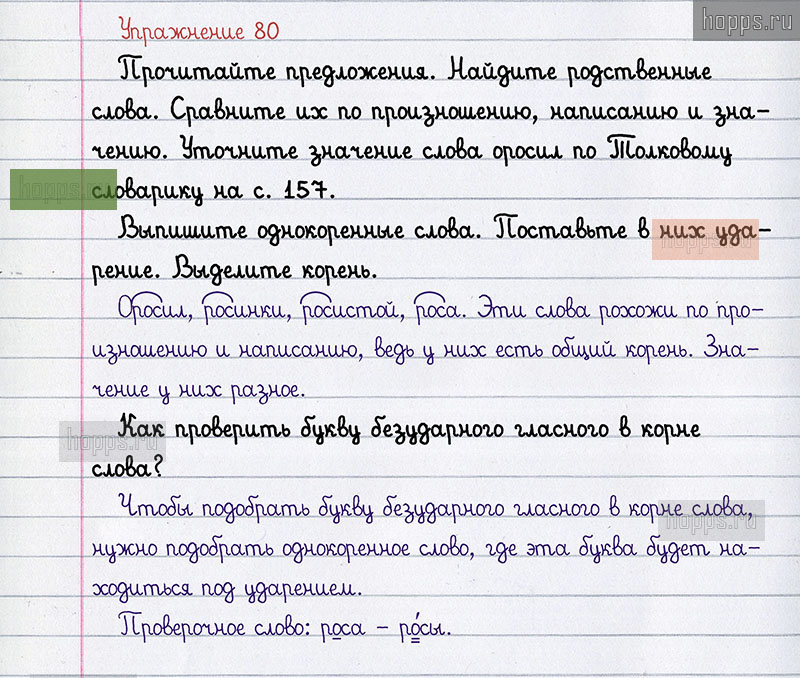 hopps.ru
Упражнение 80
Прочитайте предложения. Найдите родственные
слова. Сравните их по произношению, написанию и зна-
чению. Уточните значение слова оросил по Толковому
словарику на с. 157.
Выпишите однокоренные слова. Поставьте в них уда-
рение. Выделите корень.
Оросил, росинки, росистой, роса. Эти слова рохожи по про-
изношению и написанию, ведь у них есть общий корень. Зна-
чение у них разное.
Как проверить букву безударного гласного в корне
слова?
Чтобы подобрать букву безударного гласного в корне слова,
нужно подобрать однокоренное слово, где эта буква будет на-
ходиться под ударением.
Проверочное слово: роса – ро́сы.
hopps.ru
hopps.ru
hopps.ru
hopps.ru